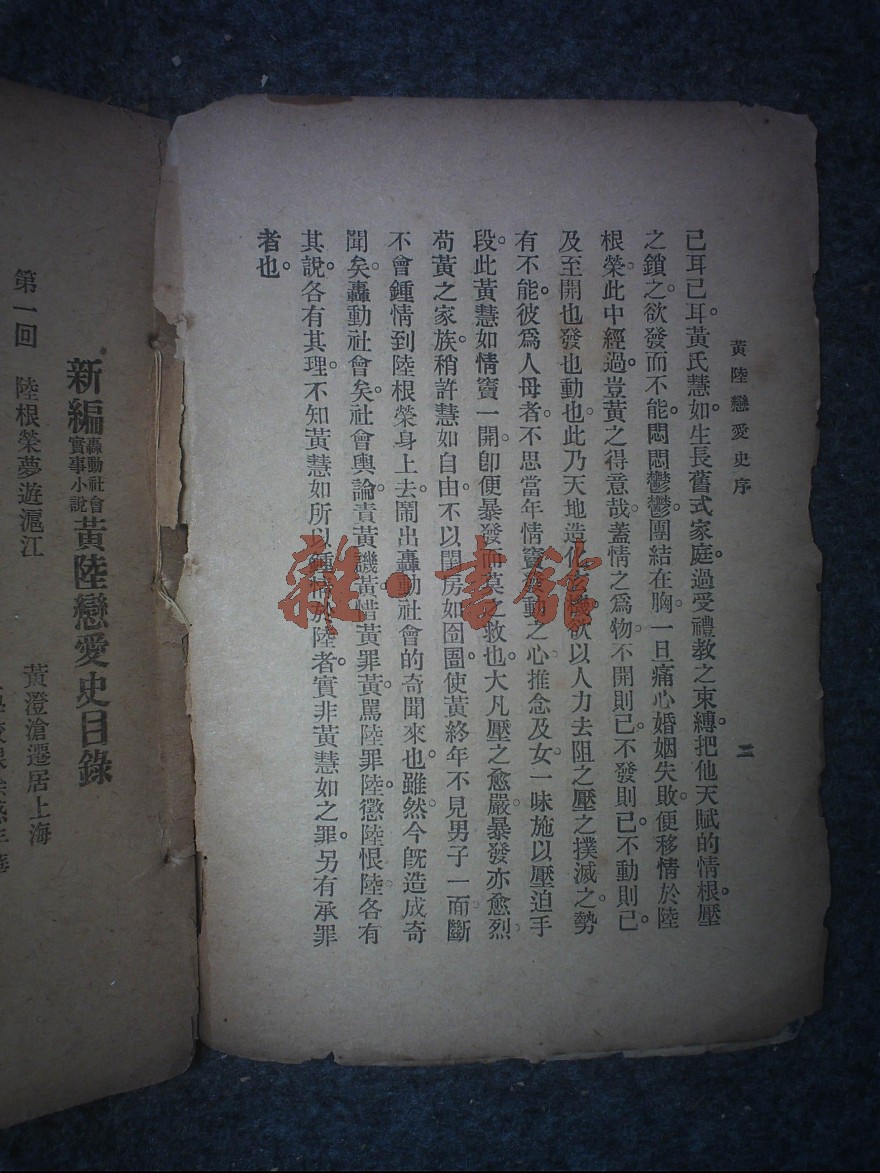 黃陸戀愛史序
二
己耳己耳黃氏慧如生長舊式家庭。過受禮教之束縛。把他天賦的情根。壓
之鎖之。欲發而不能。悶悶鬱鬱。團結在胸。一旦痛心婚姻失敗。便移情於陸
根榮。此中經過。豈黃之得意哉。蓋情之爲物。不開則已。不發則已。不動則已。
及至開也發也動也。此乃天地造化
欲以人力去阻之壓之撲滅之。勢
有不能。彼爲人母者。不思當年情竇
動之心。推念及女。一味施以壓迫手
段。此黃慧如情竇一開。卽便暴發而莫之救也。大凡壓之愈嚴。暴發亦愈烈。
苟黃之家族。稍許慧如自由。不以閨房如囹圄。使黃終年不見男子。一而斷
不會鍾情到陸根榮身上去。鬧出轟動社會的奇聞來也。雖然。今旣造成奇
聞矣。轟動社會矣。社會輿論。責黃譏黃惜黃罪黃。罵陸罪陸。懲陸恨陸。各有
其說。各有其理。不知黃慧如所以鍾情於陸者。實非黃慧如之罪。另有承罪
者也。
新編轟動社會實事小說黃陸戀愛史目錄
第一回 陸根榮夢遊滬江
黃澄滄遷居上海
雜·書館